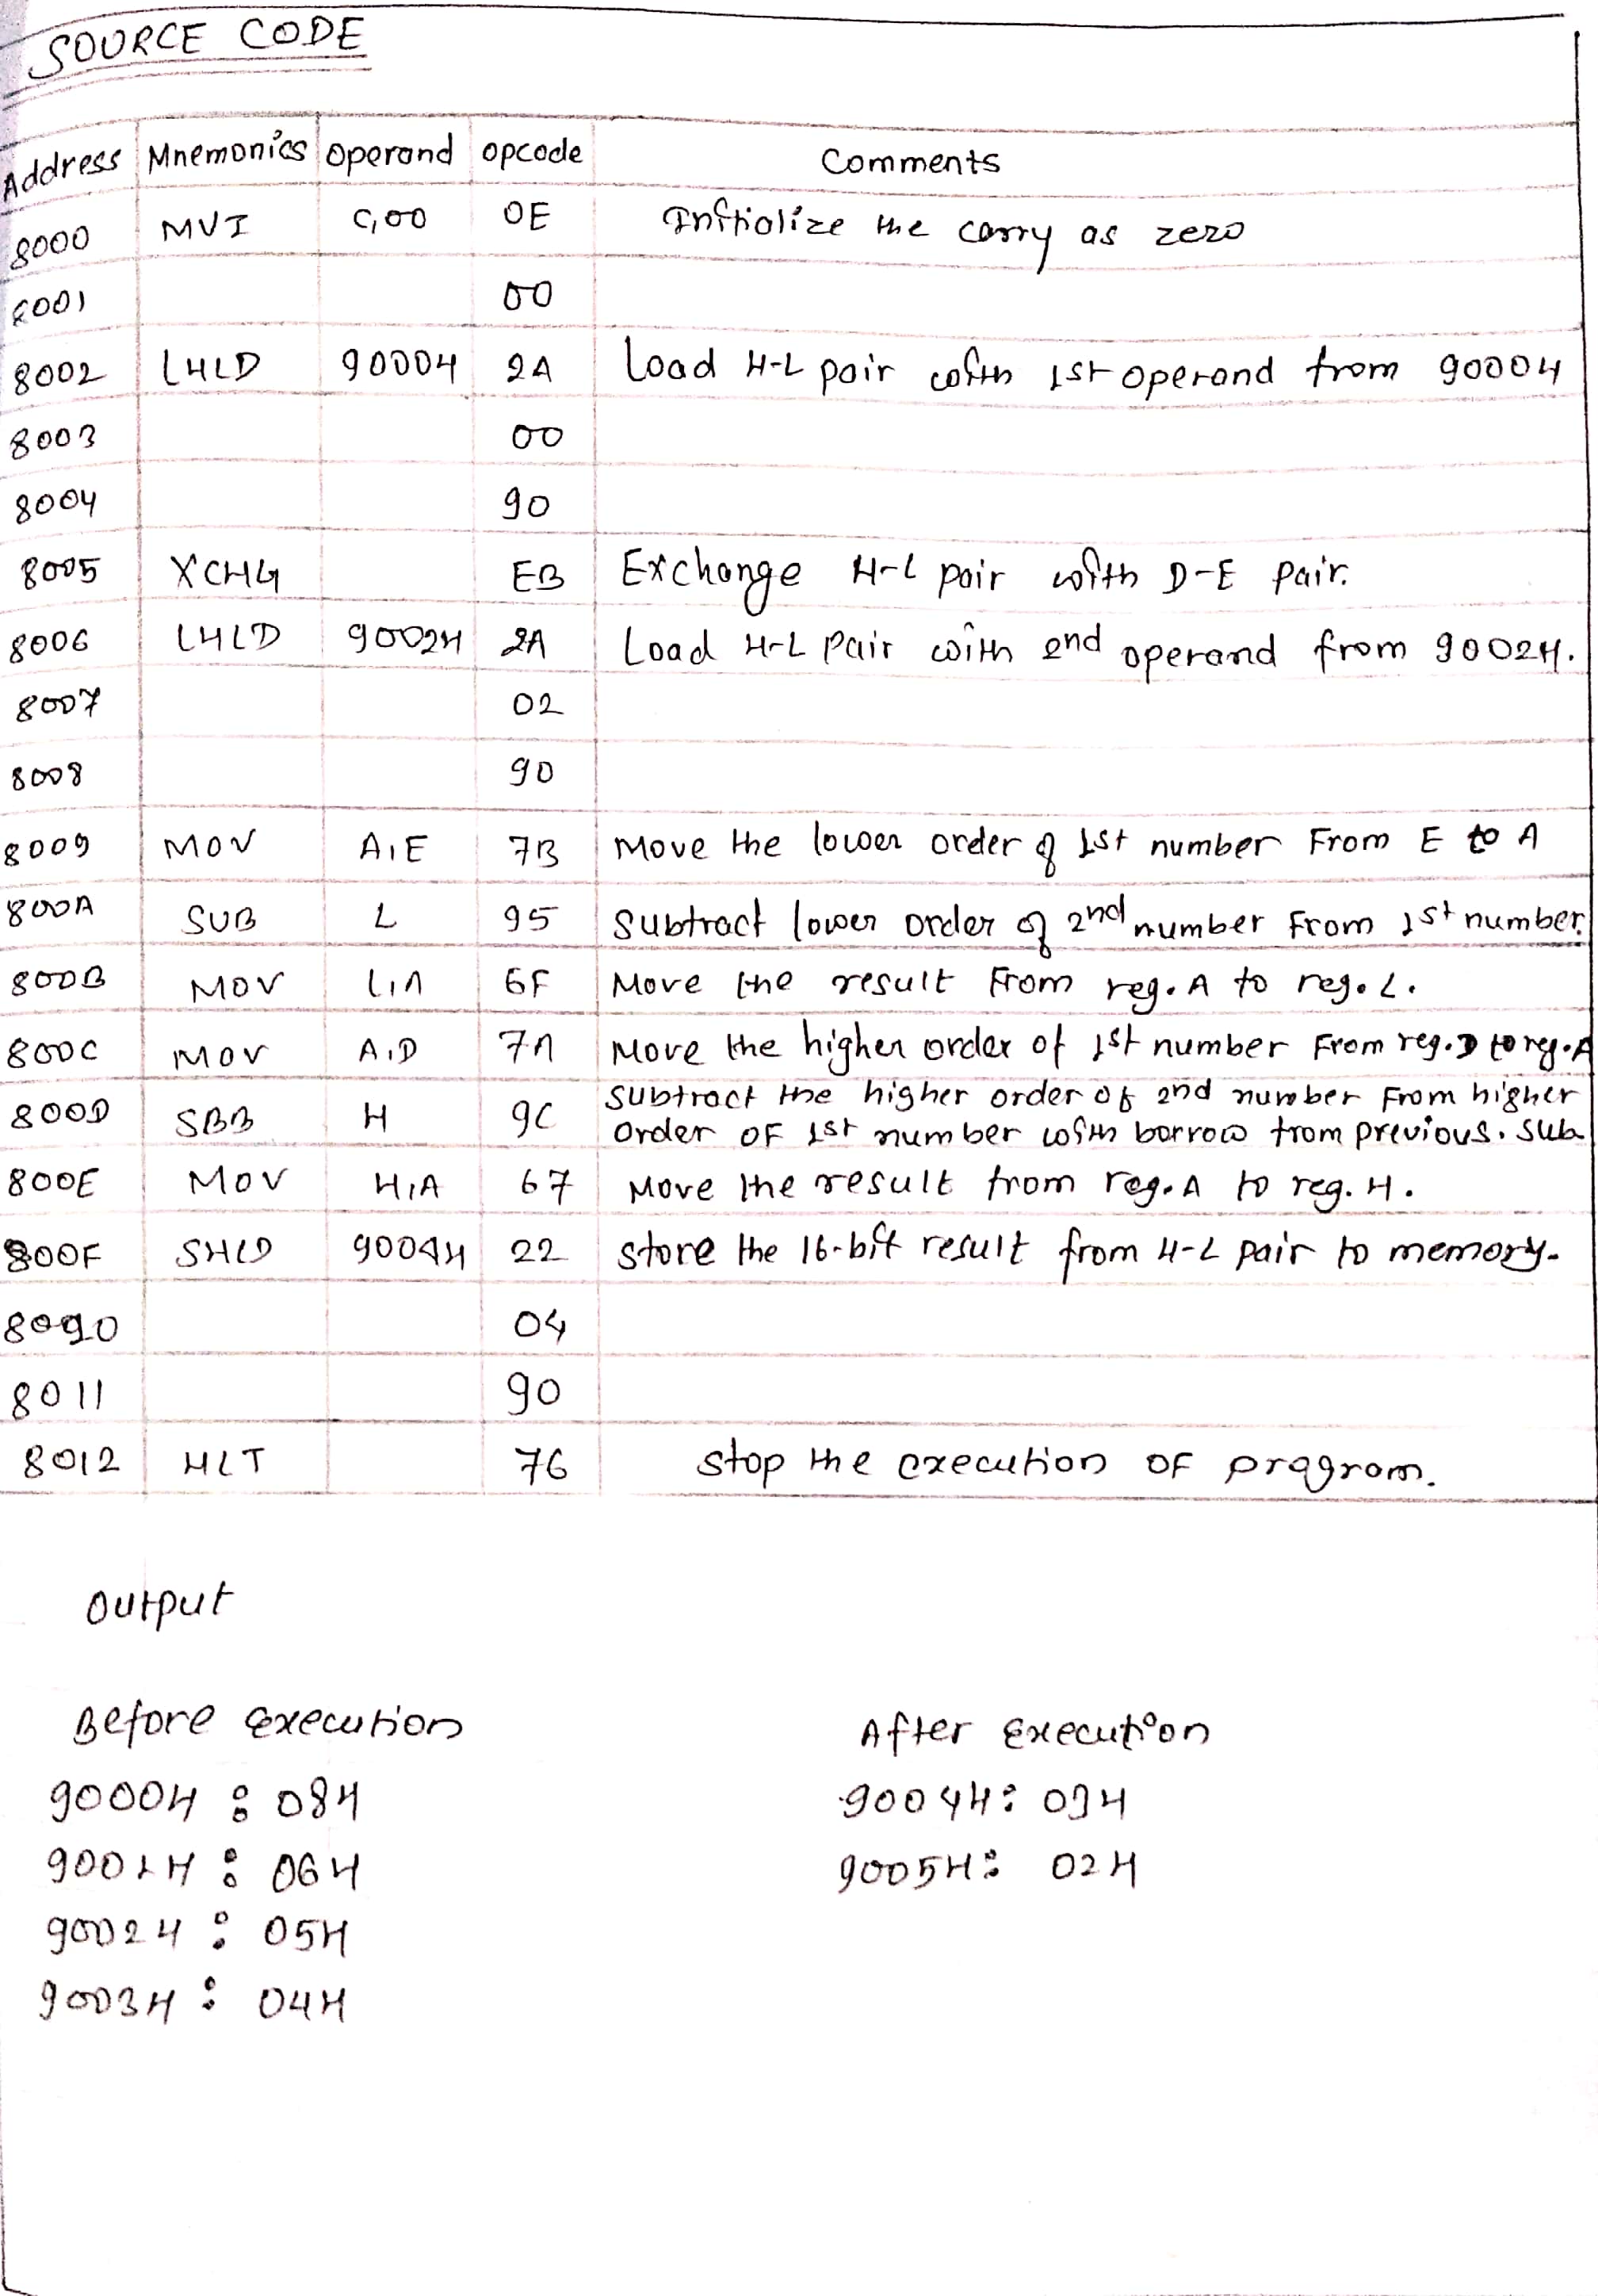 SOURCE CODE
Address Mnemonics operand opcode Comments
8000 MVI C,00 0E Initialize the carry as zero
8001 00
8002 LHLD 9000H 2A Load H-L pair with 1st operand from 9000H
8003 00
8004 90
8005 XCHG EB Exchange H-L pair with D-E pair.
8006 LHLD 9002H 2A Load H-L pair with 2nd operand from 9002H.
8007 02
8008 90
8009 MOV A,E 7B Move the lower order of 1st number From E to A
800A SUB L 95 Subtract lower order of 2nd number From 1st number.
800B MOV L,A 6F Move the result From reg. A to reg. L.
800C MOV A,D 7A Move the higher order of 1st number From reg. D to reg. A
800D SBB H 9C Subtract the higher order of 2nd number From higher
order OF 1st number with borrow from previous. sub.
800E MOV H,A 67 Move the result from reg. A to reg. H.
800F SHLD 9004H 22 store the 16-bit result from H-L pair to memory.
04
8011 90
8012 HLT 76 stop the execution OF program.
Output
Before execution After Execution
9000H : 08H 9004H : 03H
9001H : 06H 9005H : 02H
9002H : 05H
9003H : 04H